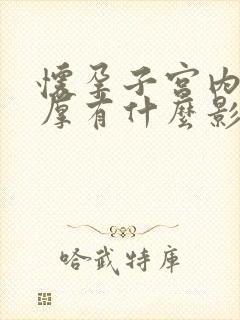 懷孕子宮內
厚有什麼影
哈武特庫